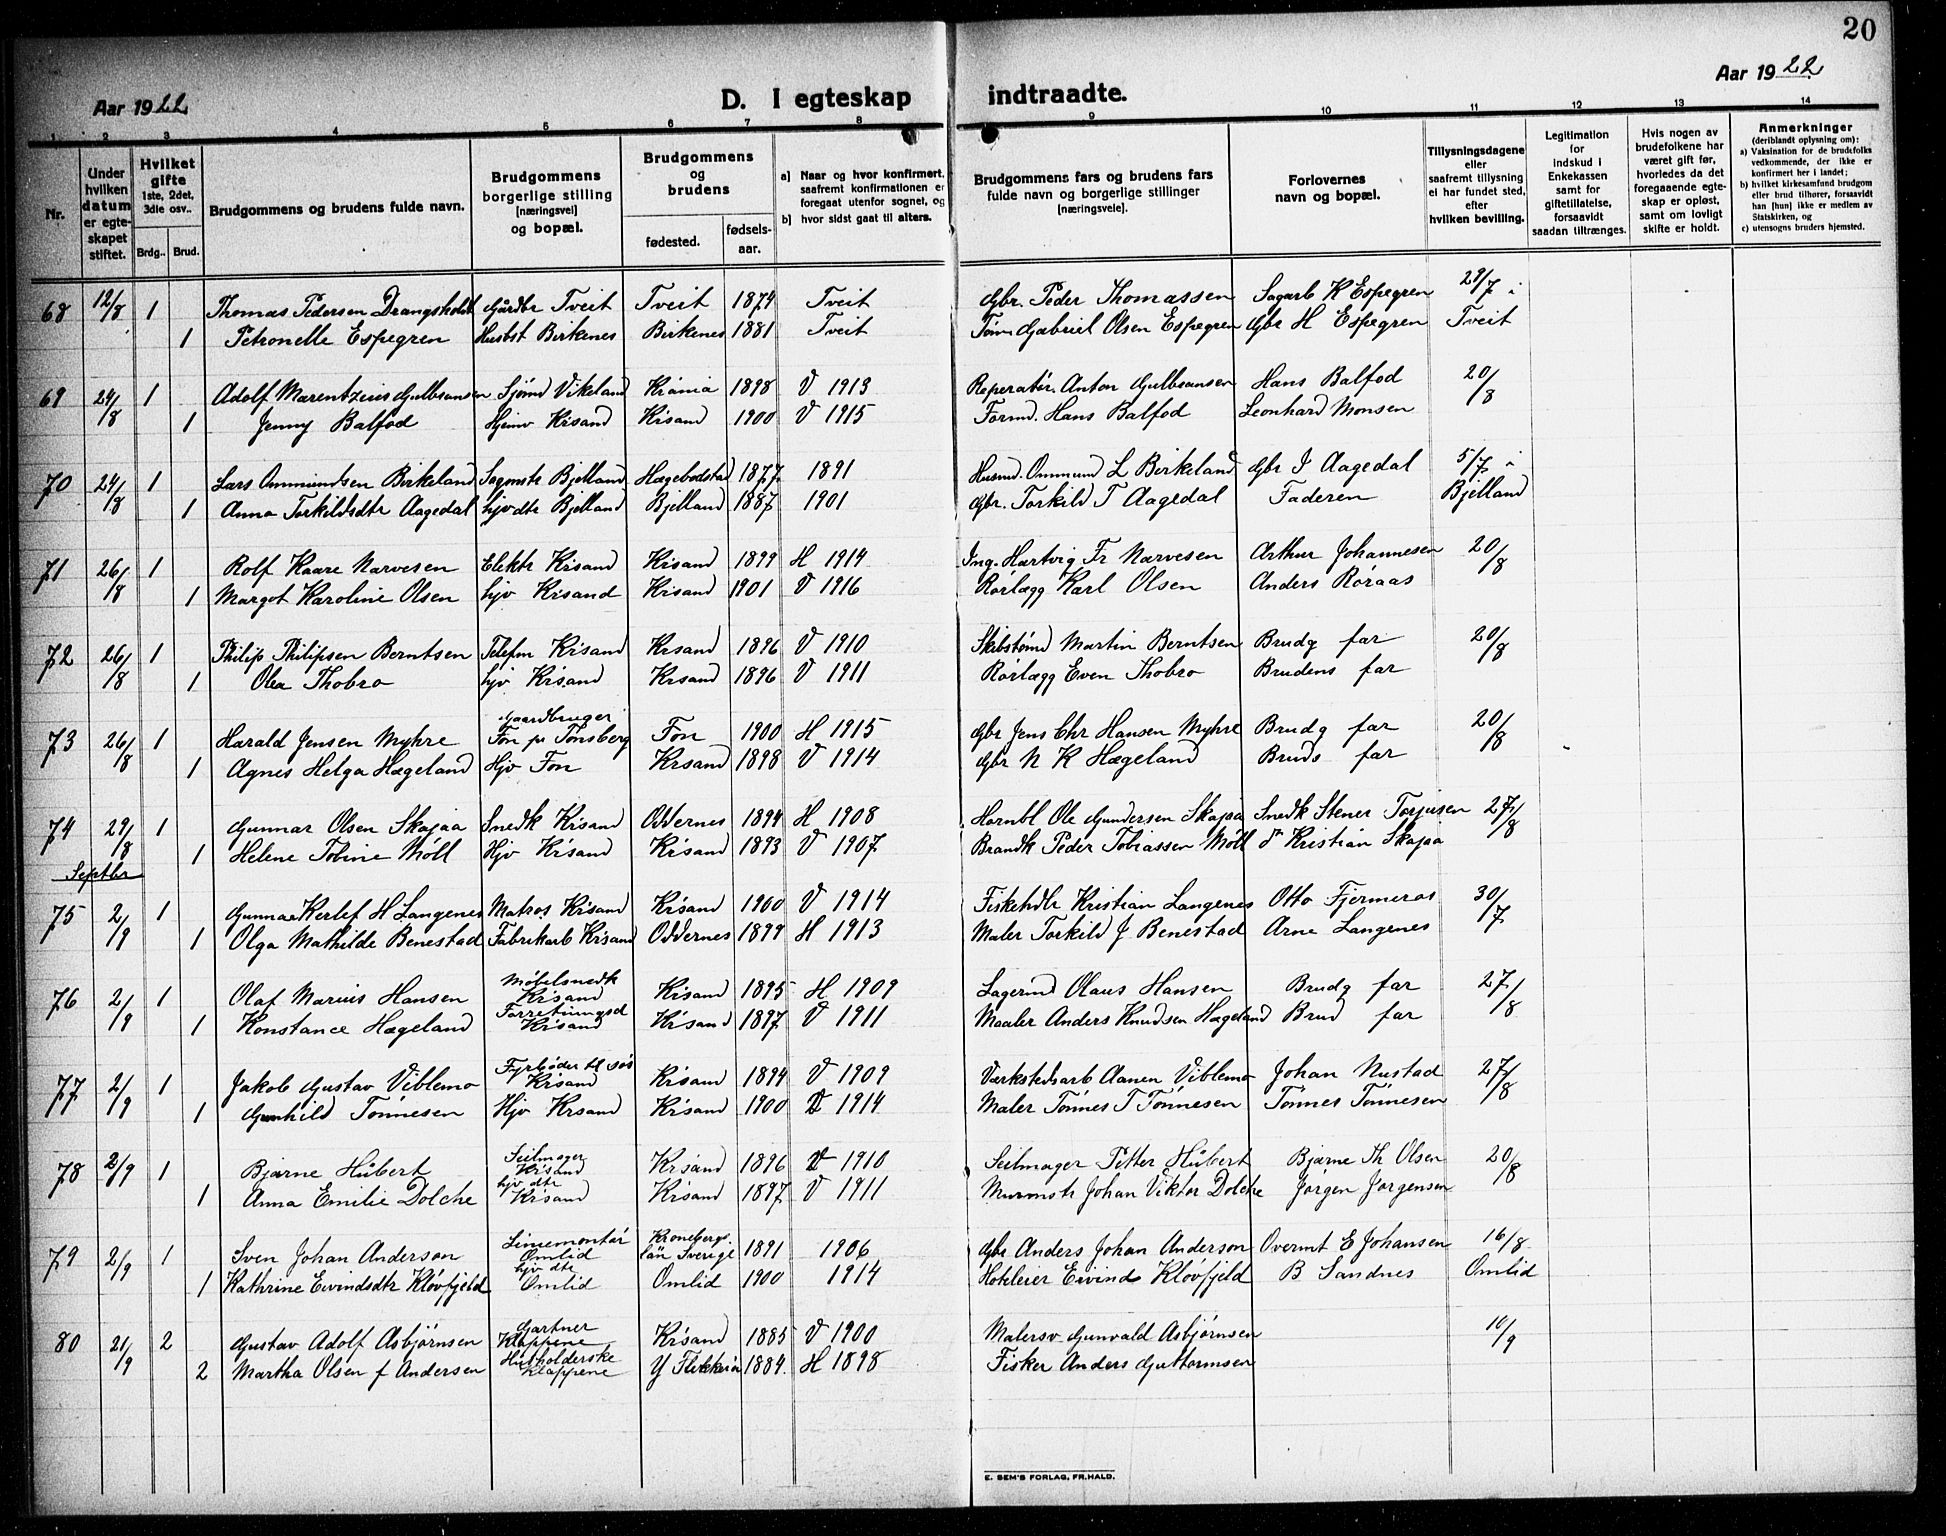 20
Aar 1922
D. I egteskap indtraadte.
Aar 1922
1 2 3 4 5 6 7 8 9 10 11 12 13 14
Nr.
Under hvilken datum er egteskapet stiftet.
Hvilket gifte 1ste, 2det, 3die osv..
Brdg.. Brud.
Brudgommens og brudens fulde navn.
Brudgommens borgerlige stilling [næringsvei] og bopæl.
Brudgommens og brudens
fødested. fødselsaar.
a) Naar og hvor konfirmert, saafremt konfirmationen er foregaat utenfor sognet, og
b) hvor sidst gaat til alters.
Brudgommens fars og brudens fars fulde navn og borgerlige stillinger [næringsveie].
Forlovernes navn og bopæl.
Tillysningsdagene eller saafremt tillysning ei har fundet sted, efter hvilken bevilling.
Legitimation for indskud i Enkekassen samt for giftetillatelse, forsaavidt saadan tiltrænges.
Hvis nogen av brudefolkene har været gift før, hvorledes da det foregaaende egteskap er opløst, samt om lovligt skifte er holdt.
Anmerkninger (deriblandt oplysning om):
a) Vaksination for de brudefolks vedkommende, der ikke er konfirmert her i landet;
b) hvilket kirkesamfund brudgom eller brud tilhører, forsaavidt han [hun] ikke er medlem av Statskirken, og
c) utensogns bruders hjemsted.
68 12/8 1 Thomas Pedersen Drangsholt Gårdbr Tveit Tveit 1874 Tveit Gbr. Peder Thomassen Sagarb K Espegren 29/7 i
1 Petronelle Espegren Husbst Birkenes Birkenes 1881 Tveit Tøm Gabriel Olsen Espegren Gbr H Espegren Tveit
69 24/8 1 Adolf Marentzius Gulbransen Sjømd Vikeland Kr.ania 1898 V 1913 Reperatør. Anton Gulbransen Hans Balfod 20/8
1 Jenny Balfod Hjemv Krsand Krsand 1900 V 1915 Formd. Hans Balfod Leonhard Monsen
70 24/8 1 Lars Ommundsen Birkeland Sagmstr Bjelland Hægebostad 1877 1891 Husmd. Ommund L Birkeland Gbr I Aagedal 5/7 i
1 Anna Torkildsdtr Aagedal hjv dtr Bjelland Bjelland 1887 1901 Gbr. Torkild T Aagedal Faderen Bjelland
71 26/8 1 Rolf Kaare Narvesen Elektr Krsand Krsand 1899 H 1914 Ing. Hartvig Fr Narvesen Arthur Johannesen 20/8
1 Margot Karoline Olsen hjv Krsand Krsand 1901 V 1916 Rørlægg Karl Olsen Anders Røraas
72 26/8 1 Philip Philipsen Berntsen Telefm Krsand Krsand 1896 V 1910 Skibstømd Martin Berntsen Brudg far 20/8
1 Olea Thobro hjv Krsand Krsand 1896 V 1911 Rørlægg Even Thobro Brudens far
Gaardbruger
73 26/8 1 Harald Jensen Myhre Fon pr Tønsberg Fon 1900 H 1915 Gbr Jens Chr Hansen Myhre Brudg far 20/8
1 Agnes Helga Hægeland Hjv Fon Krsand 1898 V 1914 Gbr N K Hægeland Bruds far
74 29/8 1 Gunnar Olsen Skajaa Snedk Krsand Oddernes 1894 H 1908 Hornbl Ole Gundersen Skajaa Snedk Stener Torjusen 27/8
1 Helene Tobine Møll Hjv Krsand Krsand 1893 V 1907 Brandk Peder Tobiassen Møll do Kristian Skajaa
Septbr
75 2/9 1 Gunnar Kerlef H Langenes Matros Krsand Krsand 1900 V 1914 Fiskehdlr Kristian Langenes Otto Fjermeros 30/7
1 Olga Mathilde Benestad Fabrikarb Krsand Oddernes 1899 H 1913 Maler Torkild J Benestad Arne Langenes
Møbelsnedk
76 2/9 1 Olaf Marius Hansen Krsand Krsand 1895 H 1909 Lagerind Olaus Hansen Brudg far 27/8
Forretningsd
1 Konstance Hægeland Krsand Krsand 1897 V 1911 Maaler Anders Knudsen Hægeland Brud far
Fyrbøder til søs
77 2/9 1 Jakob Gustav Viblemo Krsand Krsand 1894 V 1909 Værkstedsarb Aanen Viblemo Johan Nustad 27/8
1 Gunhild Tønnesen Hjv Krsand Krsand 1900 V 1914 Maler Tønnes T Tønnesen Tønnes Tønnesen
Seilmager
78 2/9 1 Bjarne Hübert Krsand Krsand 1896 V 1910 Seilmager Petter Hübert Bjarne Th Olsen 20/8
hjv dtr
1 Anna Emilie Dolche Krsand Krsand 1897 V 1911 Murmstr Johan Viktor Dolche Jørgen Jørgensen
Liniemontør Kronobergs
79 2/9 1 Sven Johan Anderson Omlid län Sverige 1891 1906 Gbr Anders Johan Anderson Overmt E Johansen 16/8
hjv dtr
1 Kathrine Eivindsdtr Kløvfjeld Omlid Omlid 1900 1914 Hoteleier Eivind Kløvfjeld B Sandnes Omlid
Gartner
80 21/9 2 Gustav Adolf Asbjørnsen Klappene Krsand 1885 V 1900 Malersv Gunvald Asbjørnsen 10/9
Husholderske
2 Martha Olsen f Andersen Klappene Y Flekkerø 1884 H 1898 Fisker Anders Guttormsen
E. SEM'S FORLAG, FR.HALD.